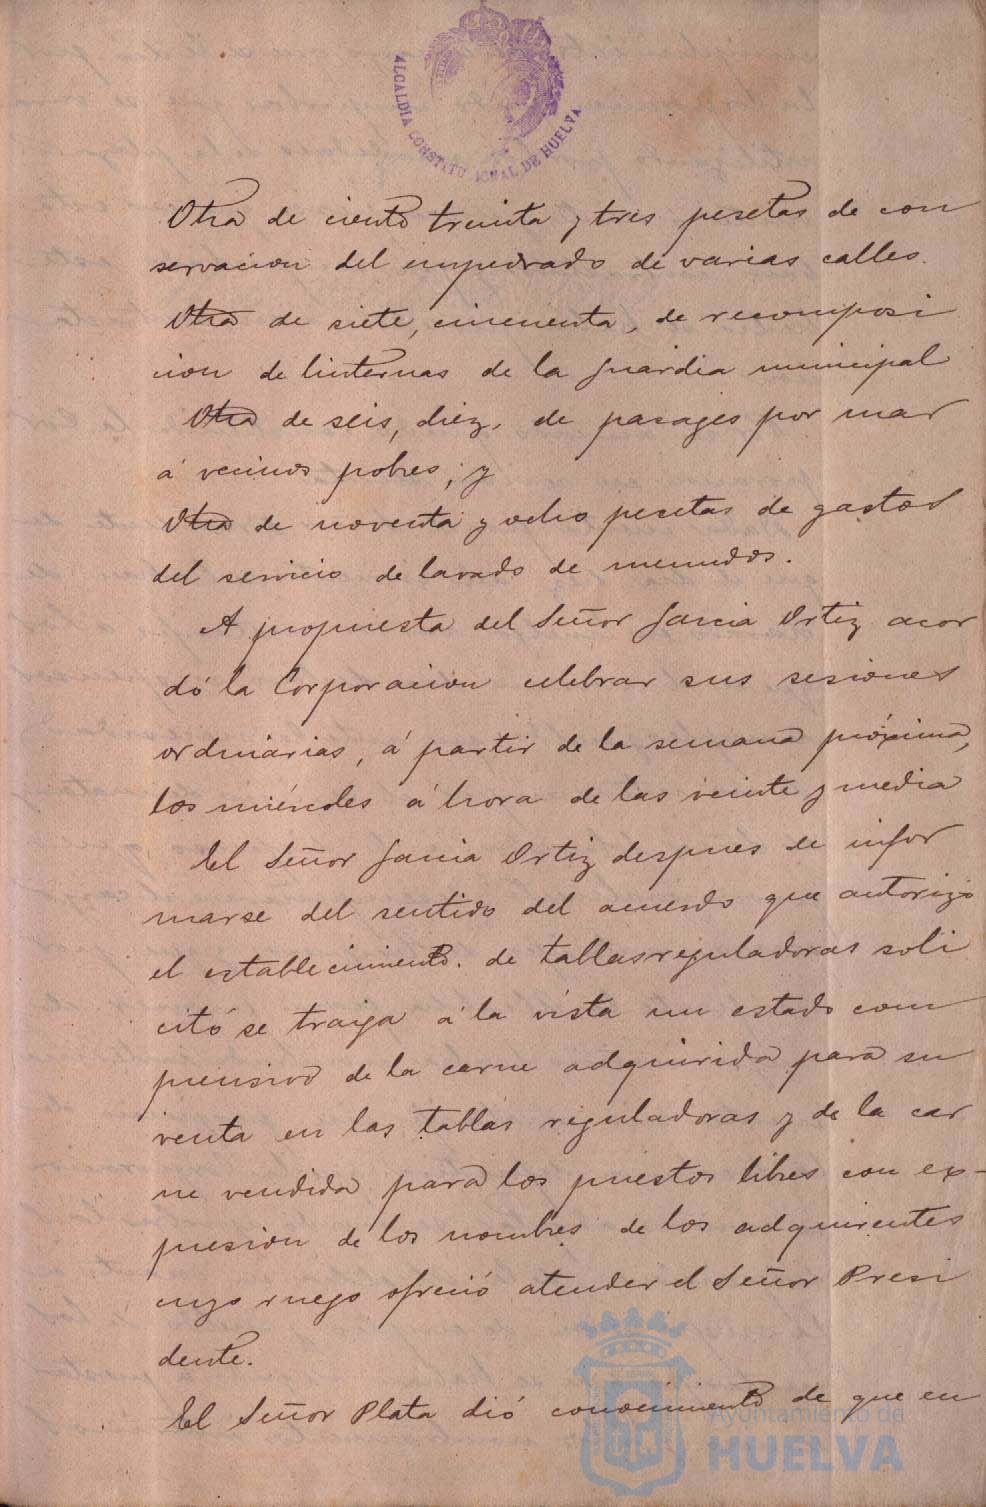 ALCALDIA CONSTITUCIONAL DE HUELVA
Otra de ciento treinta y tres pesetas de con
servacion del empedrado de varias calles.
Otra de siete, cincuenta, de recomposi
cion de linternas de la Guardia municipal
Otra de seis, diez, de pasages por mar
á vecinos pobres; y
Otra de noventa y ocho pesetas de gastos
del servicio de lavado de menudos.
A propuesta del Señor Garcia Ortiz acor
dó la Corporacion celebrar sus sesiones
ordinarias, á partir de la semana próxima,
los miércoles á hora de las veinte y media
El Señor Garcia Ortiz despues de infor
marse del sentido del acuerdo que autorizó
el establecimiento. de tablas reguladoras soli
citó se traiga á la vista un estado com
prensivo de la carne adquirida para su
venta en las tablas reguladoras y de la car
ne vendida para los puestos libres con ex-
presion de los nombres de los adquirentes
cuyo ruego ofreció atender el Señor Presi
dente.
El Señor Plata dió conocimiento de que en
Ayuntamiento de
HUELVA